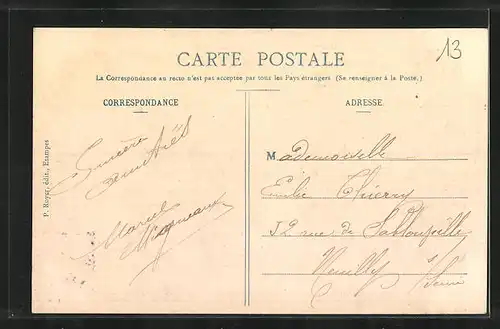 13
CARTE POSTALE
La Correspondance au recto n'est pas acceptée par tous les Pays étrangers (Se renseigner à la Poste.)
CORRESPONDANCE
ADRESSE
P. Royer, édit., Etampes
Sincère
amitiés
Marcel
Mademoiselle
Emilie Thierry
52 rue de Sablonville
Neuilly s/Seine